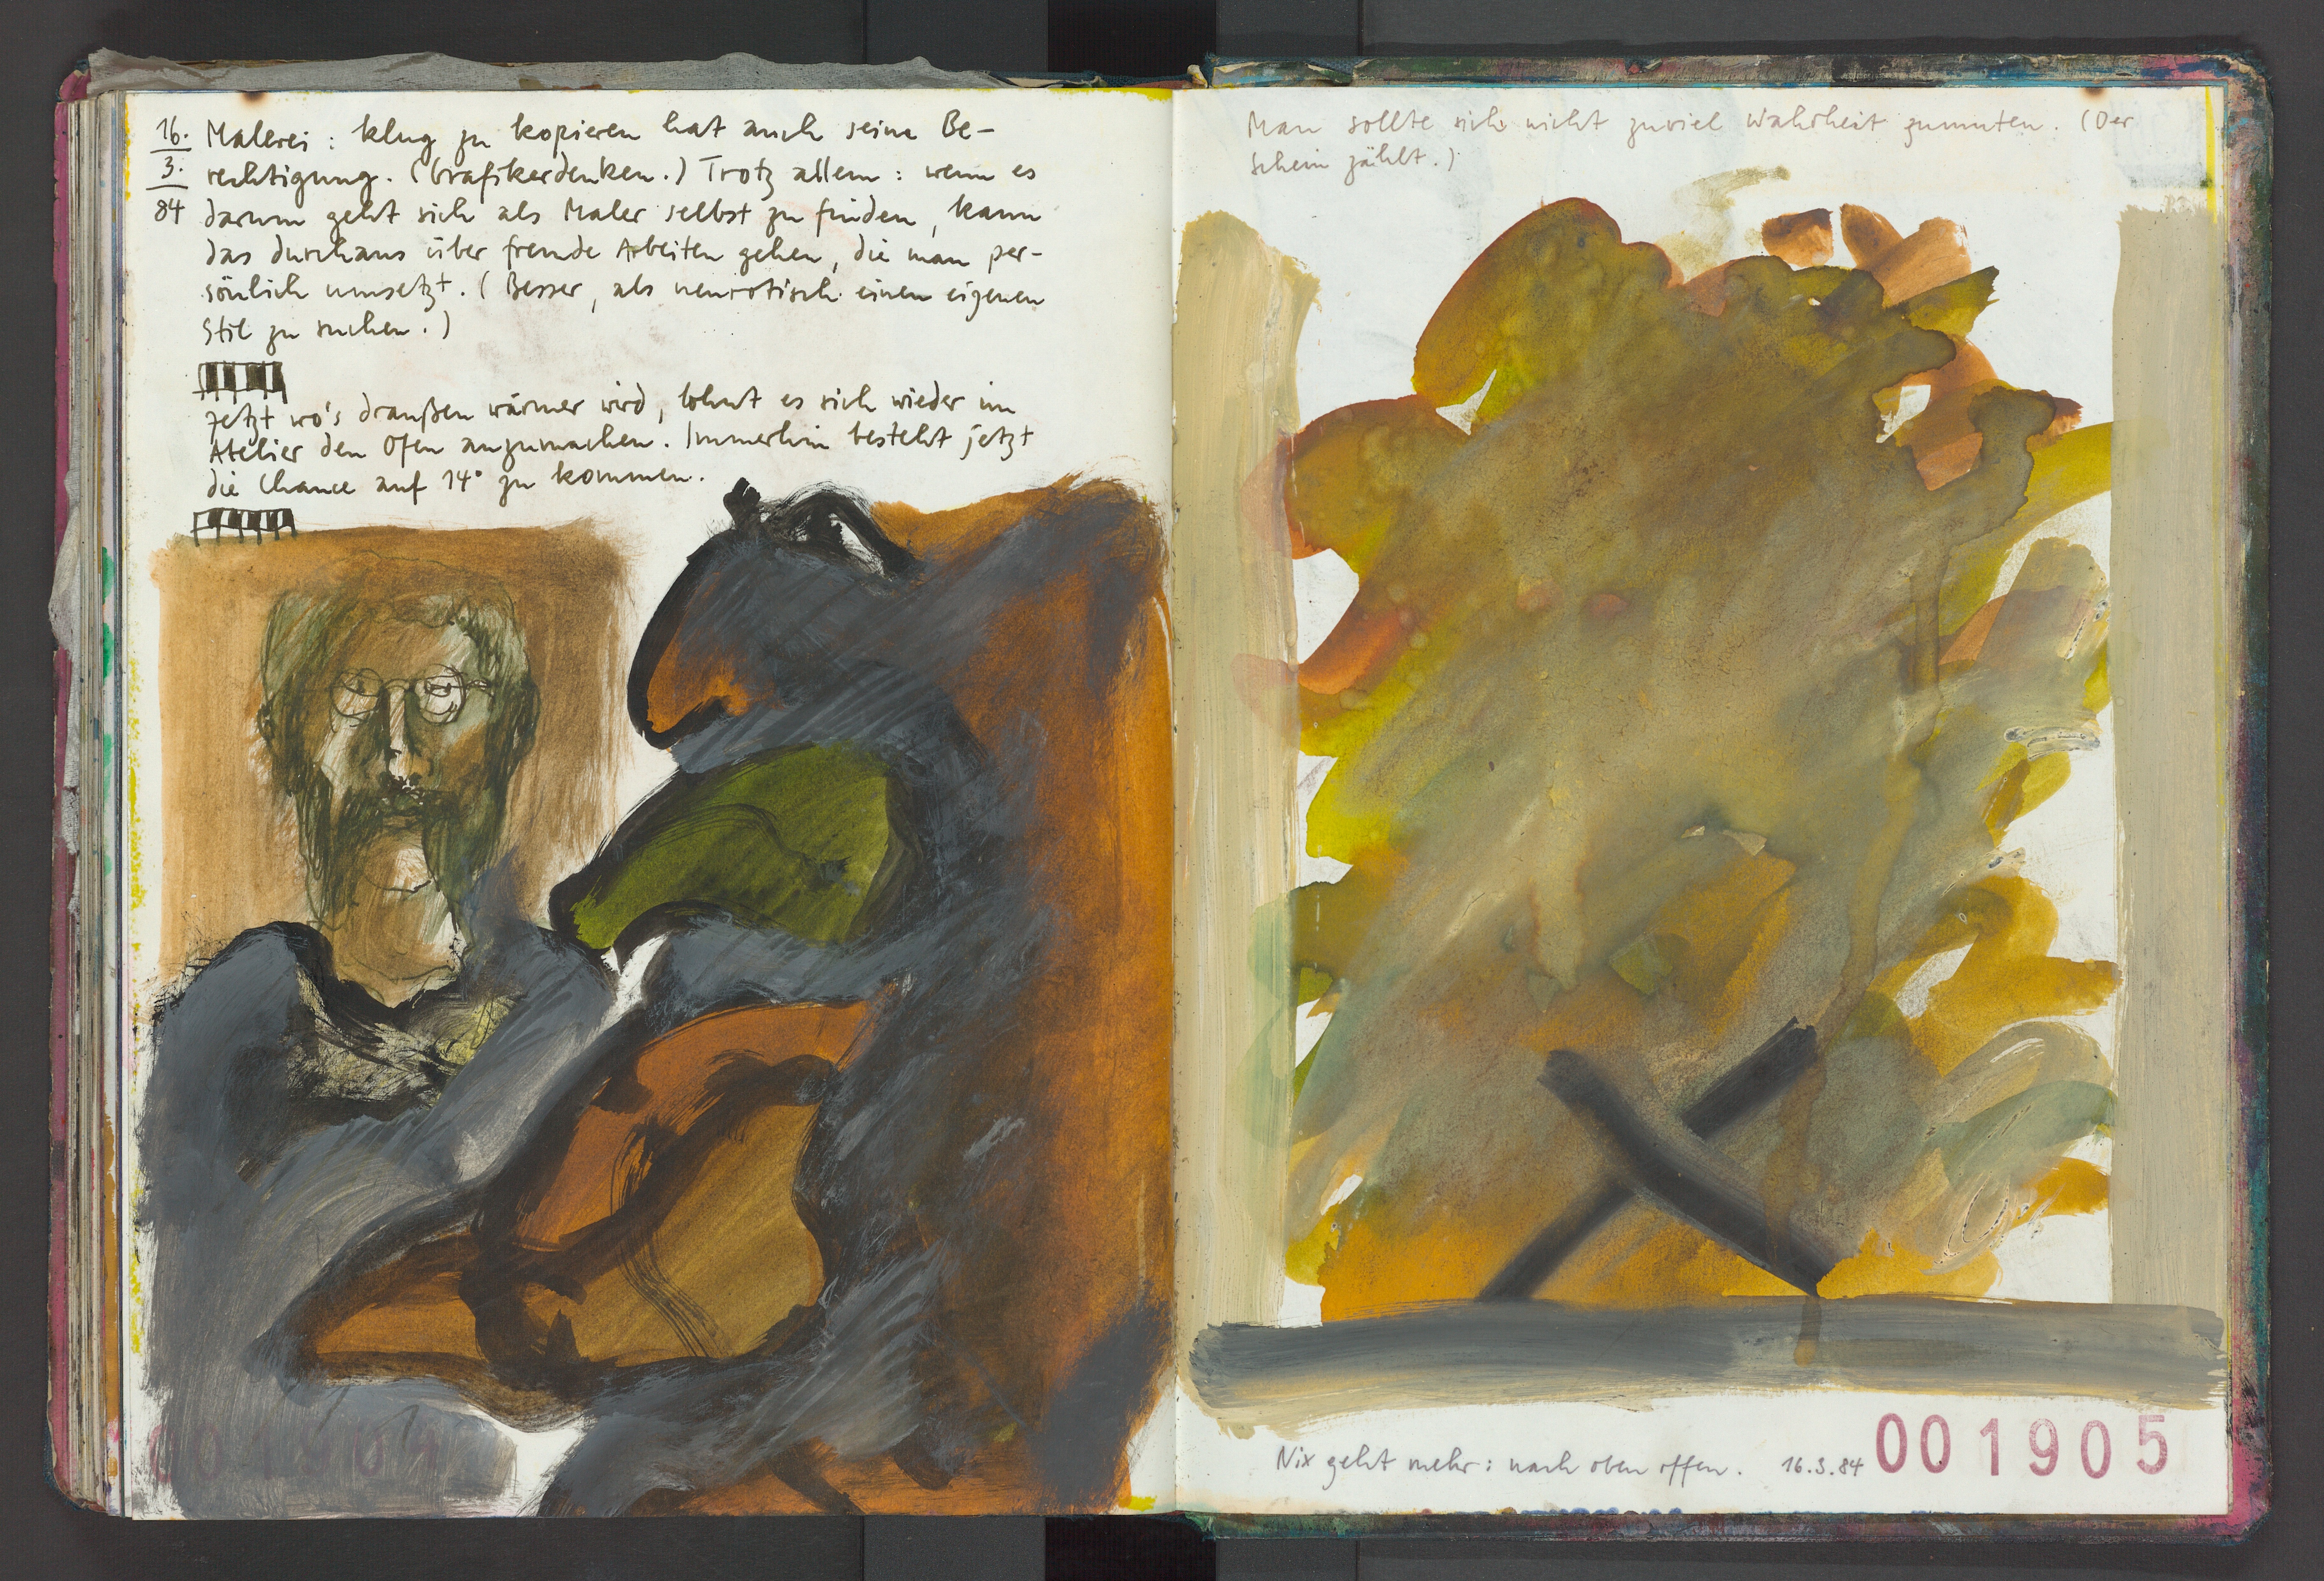 16.
3.
84
Malerei: klug zu kopieren hat auch seine Be-
rechtigung. (Grafikerdenken.) Trotz allem: wenn es
darum geht sich als Maler selbst zu finden, kann
das durchaus über fremde Arbeiten gehen, die man per-
sönlich umsetzt. (Besser, als neurotisch einen eigenen
Stil zu suchen.)
Jetzt wo's draußen wärmer wird, lohnt es sich wieder im
Atelier den Ofen anzumachen. Immerhin besteht jetzt
die Chance auf 14° zu kommen.
Man sollte sich nicht zuviel Wahrheit zumuten. (Der
Schein zählt.)
Nix geht mehr: nach oben offen. 16.3.84
001905